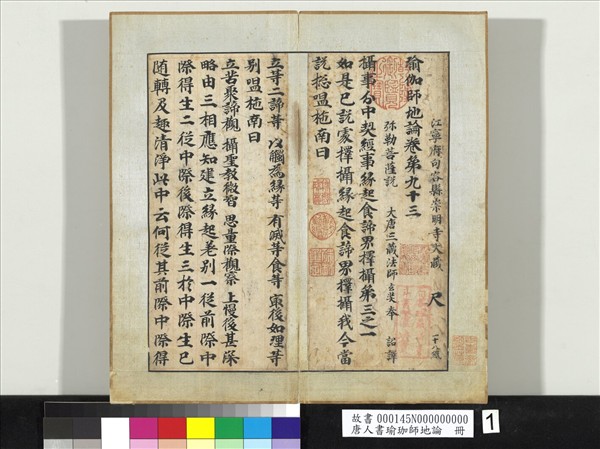 江寧府句容縣崇明寺大藏 尺 二十八紙
瑜伽師地論卷第九十三
彌勒菩薩說 大唐三藏法師玄奘奉 詔譯
攝事分中契經事緣起食諦界擇攝第三之一
如是已說處擇攝緣起食諦界擇攝我今當
說揔嗢拕南曰
立等二諦等 以觸為緣等 有滅等食等 最後如理等
別嗢拕南曰
立苦聚諦觀 攝聖教微智 思量際觀察 上慢後甚深
略由三相應知建立緣起差別一從前際中
際得生二從中際後際得生三於中際生已
隨轉及趣清淨此中云何從其前際中際得
故書 000145N000000000
唐人書瑜珈師地論 冊
1